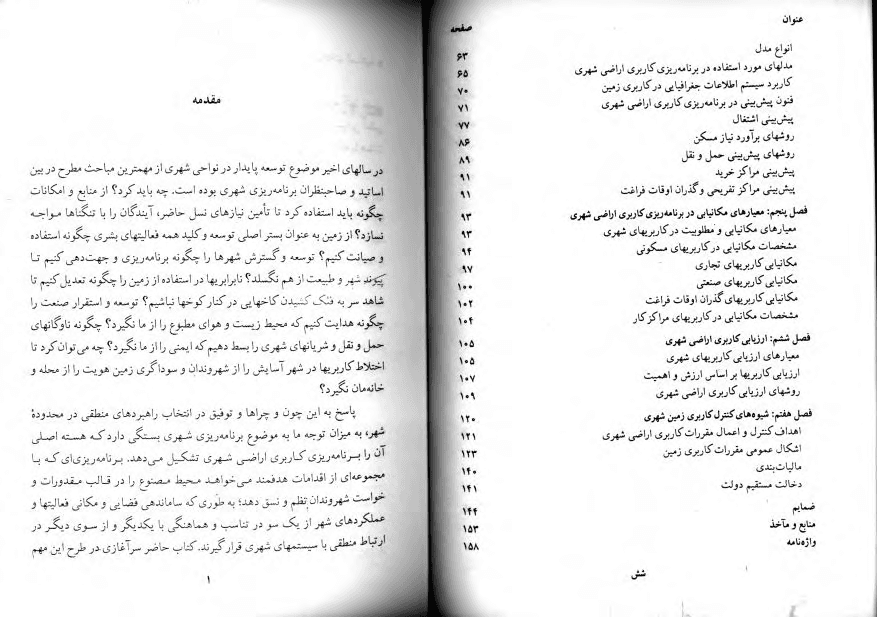 عنوان
صفحه
انواع مدل ۶۳
مدلهای مورد استفاده در برنامه‌ریزی کاربری اراضی شهری ۶۵
کاربرد سیستم اطلاعات جغرافیایی در کاربری زمین ۷۰
فنون پیش‌بینی در برنامه‌ریزی کاربری اراضی شهری ۷۱
پیش‌بینی اشتغال ۷۷
روشهای برآورد نیاز مسکن ۸۶
روشهای پیش‌بینی حمل و نقل ۸۹
پیش‌بینی مراکز خرید ۹۱
پیش‌بینی مراکز تفریحی و گذران اوقات فراغت ۹۱
فصل پنجم: معیارهای مکانیابی در برنامه‌ریزی کاربری اراضی شهری ۹۳
معیارهای مکانیابی و مطلوبیت در کاربریهای شهری ۹۳
مشخصات مکانیابی در کاربریهای مسکونی ۹۴
مکانیابی کاربریهای تجاری ۹۷
مکانیابی کاربریهای صنعتی ۱۰۰
مکانیابی کاربریهای گذران اوقات فراغت ۱۰۲
مشخصات مکانیابی در کاربریهای مراکز کار ۱۰۴
فصل ششم: ارزیابی کاربری اراضی شهری ۱۰۵
معیارهای ارزیابی کاربریهای شهری ۱۰۵
ارزیابی کاربریها بر اساس ارزش و اهمیت ۱۰۷
روشهای ارزیابی کاربری اراضی شهری ۱۰۹
فصل هفتم: شیوه‌های کنترل کاربری زمین شهری ۱۲۰
اهداف کنترل و اعمال مقررات کاربری اراضی شهری ۱۲۱
اشکال عمومی مقررات کاربری زمین ۱۲۳
مالیات‌بندی ۱۴۰
دخالت مستقیم دولت ۱۴۱
ضمایم ۱۴۴
منابع و مآخذ ۱۵۳
واژه‌نامه ۱۵۸
شش
مقدمه
در سالهای اخیر موضوع توسعه پایدار در نواحی شهری از مهمترین مباحث مطرح در بین
اساتید و صاحبنظران برنامه‌ریزی شهری بوده است. چه باید کرد؟ از منابع و امکانات
چگونه باید استفاده کرد تا تأمین نیازهای نسل حاضر، آیندگان را با تنگناها مواجه
نسازد؟ از زمین به عنوان بستر اصلی توسعه و کلید همه فعالیتهای بشری چگونه استفاده
و صیانت کنیم؟ توسعه و گسترش شهرها را چگونه برنامه‌ریزی و جهت‌دهی کنیم تا
پیوند شهر و طبیعت از هم نگسلد؟ نابرابریها در استفاده از زمین را چگونه تعدیل کنیم تا
شاهد سر به فلک کشیدن کاخهایی در کنار کوخها نباشیم؟ توسعه و استقرار صنعت را
چگونه هدایت کنیم که محیط زیست و هوای مطبوع را از ما نگیرد؟ چگونه ناوگانهای
حمل و نقل و شریانهای شهری را بسط دهیم که ایمنی را از ما نگیرد؟ چه می‌توان کرد تا
اختلاط کاربریها در شهر آسایش را از شهروندان و سوداگری زمین هویت را از محله و
خانه‌مان نگیرد؟
پاسخ به این چون و چراها و توفیق در انتخاب راهبردهای منطقی در محدودهٔ
شهر، به میزان توجه ما به موضوع برنامه‌ریزی شهری بستگی دارد که هسته اصلی
آن را برنامه‌ریزی کاربری اراضی شهری تشکیل می‌دهد. برنامه‌ریزی‌ای که با
مجموعه‌ای از اقدامات هدفمند می‌خواهد محیط مصنوع را در قالب مقدورات و
خواست شهروندان نظم و نسق دهد؛ به طوری که ساماندهی فضایی و مکانی فعالیتها و
عملکردهای شهر از یک سو در تناسب و هماهنگی با یکدیگر و از سوی دیگر در
ارتباط منطقی با سیستمهای شهری قرار گیرند. کتاب حاضر سرآغازی در طرح این مهم
۱